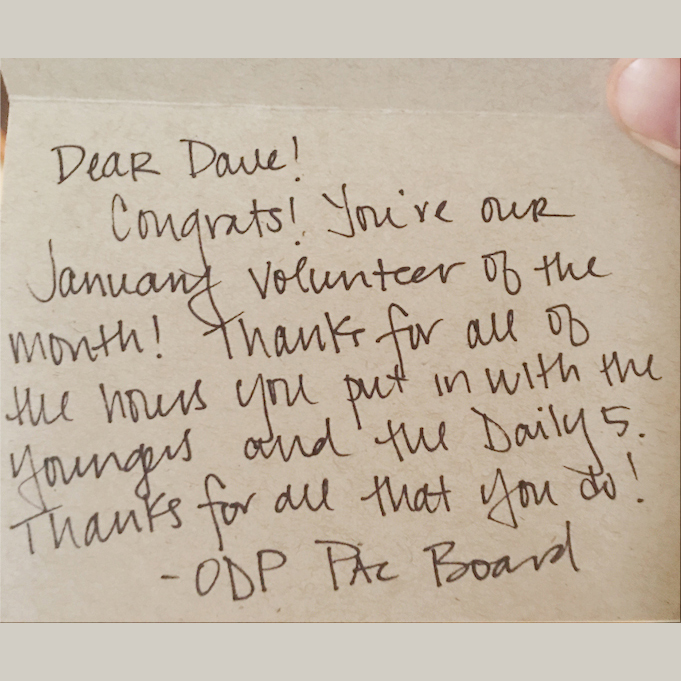 Dear Dave!
Congrats! You're our
January volunteer of the
month! Thanks for all of
the hours you put in with the
youngers and the Daily 5.
Thanks for all that you do!
-ODP PAC Board